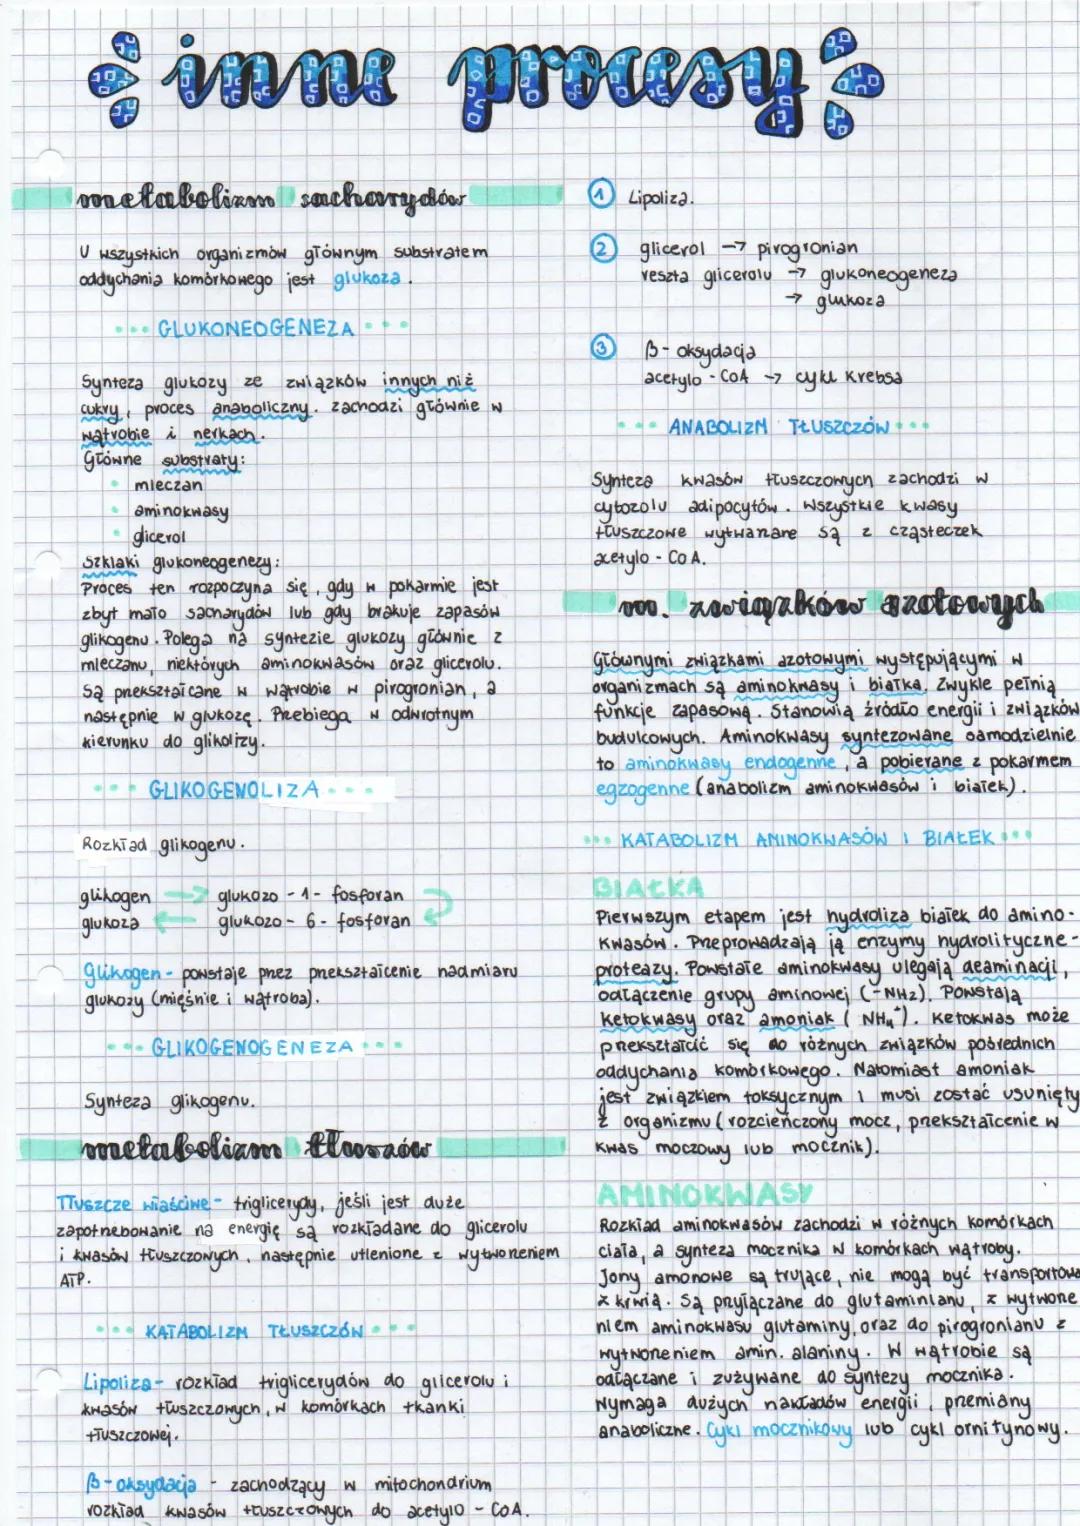 inne procesy
metabolizm sacharydów
U wszystkich organizmów głównym substratem
oddychania komórkowego jest glukoza.
GLUKONEOGENEZA
Synteza glukozy ze związków innych niż
cukry, proces anaboliczny. zachodzi głównie w
wątrobie i nerkach.
Główne substraty:
mleczan
aminokwasy
glicerol
Szklaki glukoneogenezy:
Proces ten rozpoczyna się, gdy w pokarmie jest
zbyt mało sacharydów lub gdy brakuje zapasów
glikogenu. Polega na syntezie glukozy głównie z
mleczanu, niektórych aminokwasów oraz glicerolu.
Są przekształcane w wątrobie w pirogronian, a
następnie w glukozę. Przebiega w odwrotnym
kierunku do glikolizy.
GLIKOGENOLIZA
Rozkład glikogenu.
glikogen → glukozo - 1 - fosforan
glukoza ← glukozo - 6 - fosforan
Glikogen - powstaje przez przekształcenie nadmiaru
glukozy (mięśnie i wątroba).
GLIKOGENOGENEZA
Synteza glikogenu.
metabolizm tłuszów
Tłuszcze właściwe - triglicerydy, jeśli jest duże
zapotrzebowanie na energię są rozkładane do glicerolu
i kwasów tłuszczowych, następnie utlenione z wytworzeniem
ATP.
KATABOLIZM TŁUSZCZÓW
Lipoliza - rozkład triglicerydów do glicerolu i
kwasów tłuszczowych, w komórkach tkanki
tłuszczowej.
β-oksydacja - zachodzący w mitochondrium
rozkład kwasów tłuszczowych do acetylo - CoA.
1 Lipoliza.
2 glicerol → pirogronian
reszta glicerolu → glukoneogeneza
→ glukoza
3 β- oksydacja
acetylo - CoA → cykl Krebsa
ANABOLIZM TŁUSZCZÓW
Synteza kwasów tłuszczowych zachodzi w
cytozolu adipocytów. Wszystkie kwasy
tłuszczowe wytwarzane są z cząsteczek
acetylo - CoA.
m. związków azotowych
Głównymi związkami azotowymi występującymi w
organizmach są aminokwasy i białka. Zwykle pełnią
funkcje zapasową. Stanowią źródło energii i związków
budulcowych. Aminokwasy syntezowane samodzielnie
to aminokwasy endogenne, a pobierane z pokarmem
egzogenne (anabolizm aminokwasów i białek).
KATABOLIZM AMINOKWASÓW I BIAŁEK
BIAŁKA
Pierwszym etapem jest hydroliza białek do amino-
kwasów. Przeprowadzają ją enzymy hydrolityczne -
proteazy. Powstałe aminokwasy ulegają deaminacji,
odłączenie grupy aminowej (-NH2). Powstają
ketokwasy oraz amoniak (NH₄⁺). Ketokwas może
przekształcić się do różnych związków pośrednich
oddychania komórkowego. Natomiast amoniak
jest związkiem toksycznym i musi zostać usunięty
z organizmu (rozcieńczony mocz, przekształcenie w
kwas moczowy lub mocznik).
AMINOKWASY
Rozkład aminokwasów zachodzi w różnych komórkach
ciała, a synteza mocznika w komórkach wątroby.
Jony amonowe są trujące, nie mogą być transportowa
z krwią. Są przyłączane do glutaminianu, z wytworze
niem aminokwasu glutaminy, oraz do pirogronianu z
wytworzeniem amin. alaniny. W wątrobie są
odłączane i zużywane do syntezy mocznika.
Wymaga dużych nakładów energii, przemiany
anaboliczne. Cykl mocznikowy lub cykl ornitynowy.